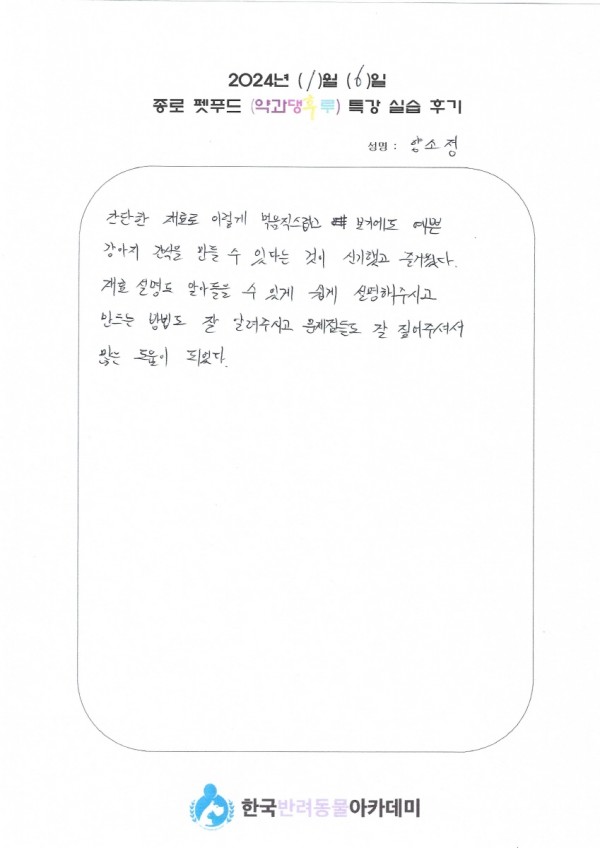 2024년 (1)월 (6)일
종로 펫푸드 (약과댕후루) 특강 실습 후기
성명 : 함소정
간단한 재료로 이렇게 먹음직스럽고 보기에도 예쁜
강아지 간식을 만들 수 있다는 것이 신기했고 즐거웠다.
재료 설명도 알아들을 수 있게 쉽게 설명해주시고
만드는 방법도 잘 알려주시고 문제점들도 잘 짚어주셔서
많은 도움이 되었다.
한국반려동물아카데미